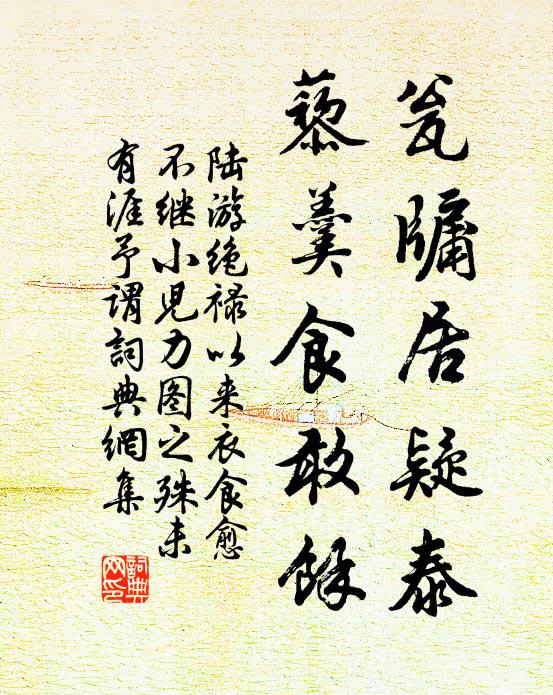 瓮牖居疑泰
藜羹食敢馀
陆游绝禄以来衣食愈
不继小儿力图之殊未
有涯予谓词典網集
詞典
网印